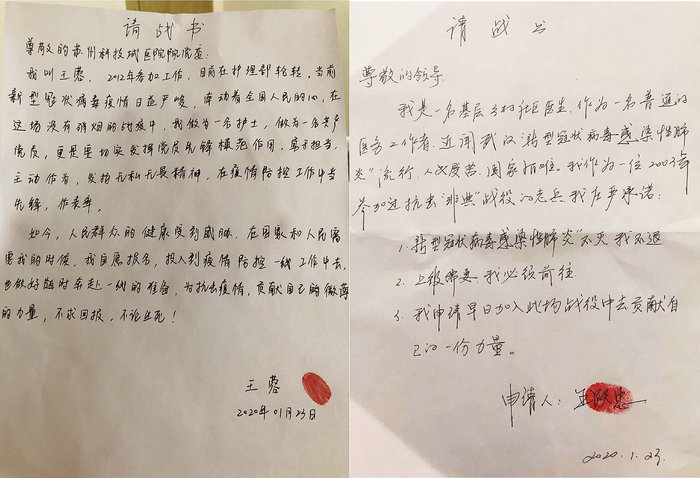 请战书
尊敬的苏州科技城医院院党委:
我叫王蓉，2012年参加工作，目前在护理部轮转。当前
新型冠状病毒疫情日益严峻，牵动着全国人民的心，在
这场没有硝烟的战役中，我做为一名护士，做为一名共产
党员，更是要切实发挥党员先锋模范作用，勇于担当，
主动作为，发扬无私无畏精神，在疫情防控工作中当
先锋，作表率。
如今，人民群众的健康受到威胁，在国家和人民需
要我的时候，我自愿报名，投入到疫情防控一线工作中去，
并做好随时奔赴一线的准备，为抗击疫情，贡献自己的微薄
的力量，不求回报，不论生死！
王蓉
2020年01月23日
请战书
尊敬的领导:
我是一名基层乡村社区医生，作为一名普通的
医务工作者，近闻武汉“新型冠状病毒感染性肺
炎”流行，人民受苦，国家有难。我作为一位2003年
参加过抗击“非典”战役的老兵，我庄严承诺:
1. 新型冠状病毒感染性肺炎”不灭 我不退
2. 上级需要，我必须前往.
3. 我申请早日加入此场战役中去贡献自
己的一份力量。
申请人: 王跃忠
2020.1.23.